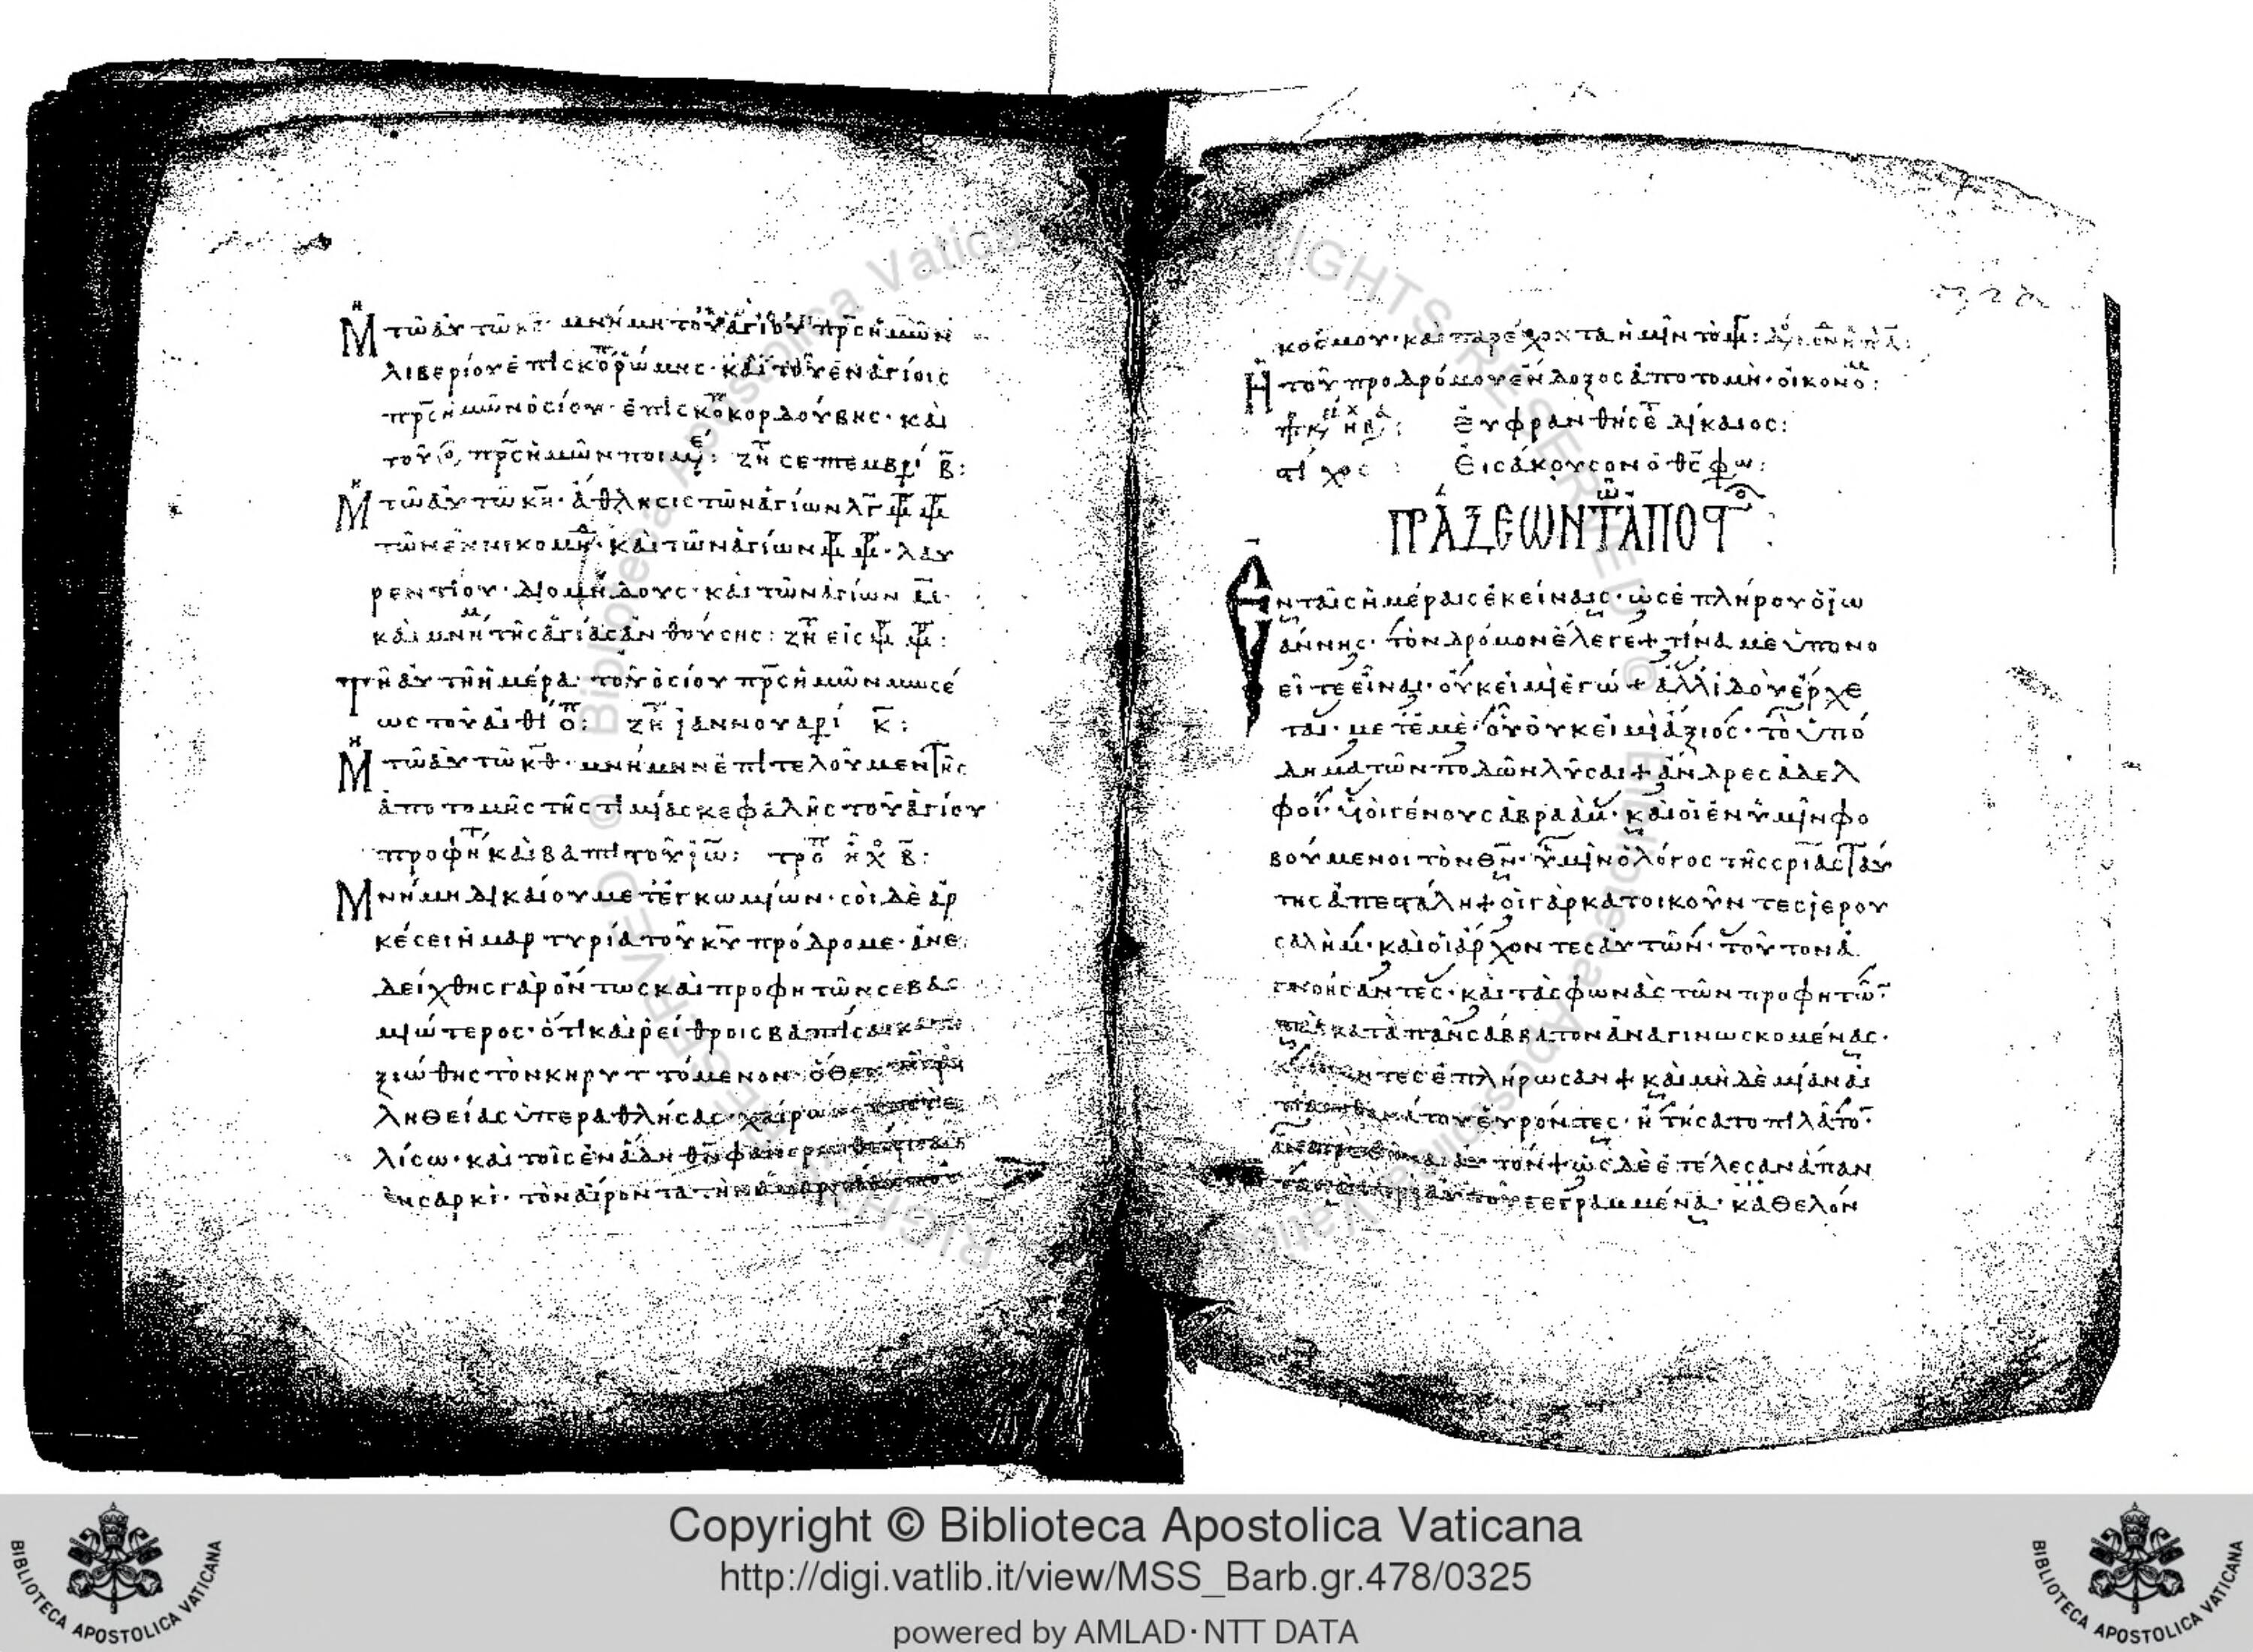 Μη τῶ αὐτῶ κζ· μνήμη τοῦ ἁγίου πρς ἡμῶν
λιβερίου ἐπισκοπ ῥώμης· καὶ τοῦ ἐν ἁγίοις
πρς ἡμῶν ὁσίου· ἐπισκοπ κορδούβης· καὶ
τοῦ πρς ἡμῶν ποιμε: ζη σεπτεμβρί β:
Μη τῶ αὐτῶ κη· ἄθλησις τῶν ἁγίων λγ
τῶν ἐν νικομη· καὶ τῶν ἁγίων · λαυ
ρεντίου· διομήδους· καὶ τῶν ἁγίων
καὶ μνημ τῆς ἁγίας ἀνθούσης: ζη εἰς
τῆ αὐτῆ ἡμέρα· τοῦ ὁσίου πρς ἡμῶν μωσέ
ως τοῦ αἰθίοπ: ζη ἰαννουαρί κ:
Μη τῶ αὐτῶ κθ· μνήμην ἐπιτελοῦμεν τῆς
ἀποτομῆς τῆς τιμίας κεφαλῆς τοῦ ἁγίου
προφητ καὶ βαπτιτοῦ ἰω: τροπ ἦχ β:
Μνήμη δικαίου μετ ἐγκωμίων· σοὶ δὲ ἀρ
κέσει ἡ μαρτυρία τοῦ κυ πρόδρομε· ἀνε
δείχθης γὰρ ὄντως καὶ προφητῶν σεβασ
μιώτερος· ὅτι καὶ ῥείθροις βαπτίσαι κατη
ξιώθης τὸν κηρυττόμενον· ὅθεν
ληθείας ὑπεραθλήσας· χαίρων
λίσω· καὶ τοῖς ἐν ἅδη θν φανερωθέντα
ἐν σαρκὶ· τὸν αἴροντα τὴν ἁμαρτίαν τοῦ
κόσμου· καὶ παρέχοντα ἡμῖν τὸ
Ἡ τοῦ προδρόμου ἔνδοξος ἀποτομὴ· οἰκονομ:
Εὐφρανθήσετ δίκαιος:
στίχος : Εἰσάκουσον ὁ θς φω:
ΠΡΑΞΕΩΝ ΤΩΝ ΑΠΟΣΤ:
Ἐν ταῖς ἡμέραις ἐκείναις· ὡς ἐπλήρου ὁ ἰω
άννης· τὸν δρόμον ἔλεγε + τίνα με ὑπονο
εῖτε εἶναι· οὐκ εἰμὶ ἐγώ + ἀλλ ἰδοὺ ἔρχε
ται· μετ ἐμὲ· οὗ οὐκ εἰμὶ ἄξιος· τὸ ὑπό
δημα τῶν ποδῶν λῦσαι + ἄνδρες ἀδελ
φοί· υἱοὶ γένους ἀβραάμ· καὶ οἱ ἐν ὑμῖν φο
βούμενοι τὸν θν· ὑμῖν ὁ λόγος τῆς σριας ταύ
της ἀπεστάλη + οἱ γὰρ κατοικοῦντες ἱερου
σαλὴμ· καὶ οἱ ἄρχοντες αὐτῶν· τοῦτον ἀ
γνοήσαντες· καὶ τὰς φωνὰς τῶν προφητῶ
τὰς κατὰ πᾶν σάββατον ἀναγινωσκομένας·
κρίναντες ἐπλήρωσαν + καὶ μηδὲ μίαν αἰ
τίαν θανάτου εὑρόντες· ἠτήσατο πιλάτο
ἀναιρεθῆναι αὐτόν + ὡς δὲ ἐτέλεσαν ἅπαν
τα τὰ περὶ αὐτοῦ γεγραμμένα· καθελόν
Copyright © Biblioteca Apostolica Vaticana
http://digi.vatlib.it/view/MSS_Barb.gr.478/0325
powered by AMLAD·NTT DATA
BIBLIOTECA APOSTOLICA VATICANA
BIBLIOTECA APOSTOLICA VATICANA